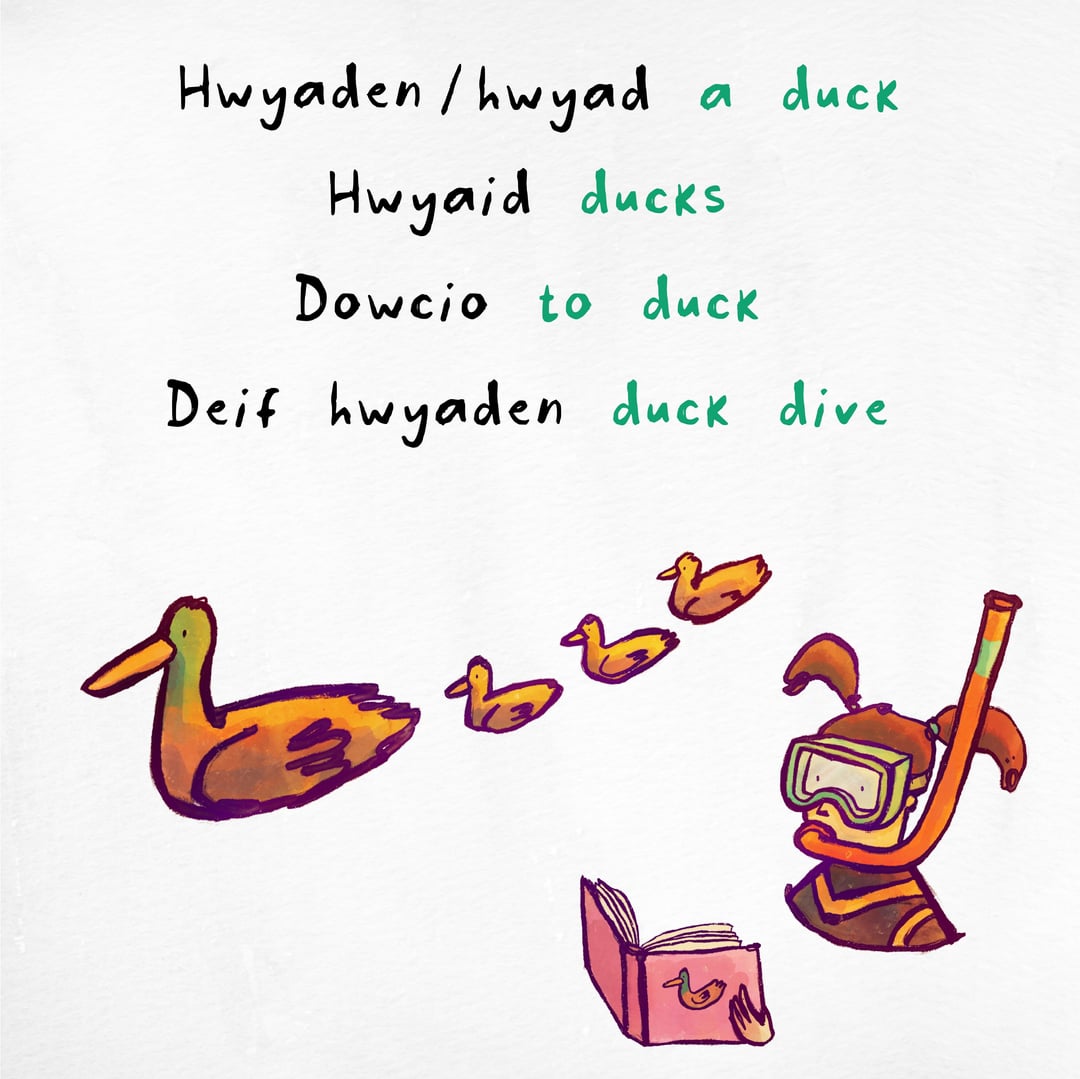 Hwyaden/hwyad a duck
Hwyaid ducks
Dowcio to duck
Deif hwyaden duck dive